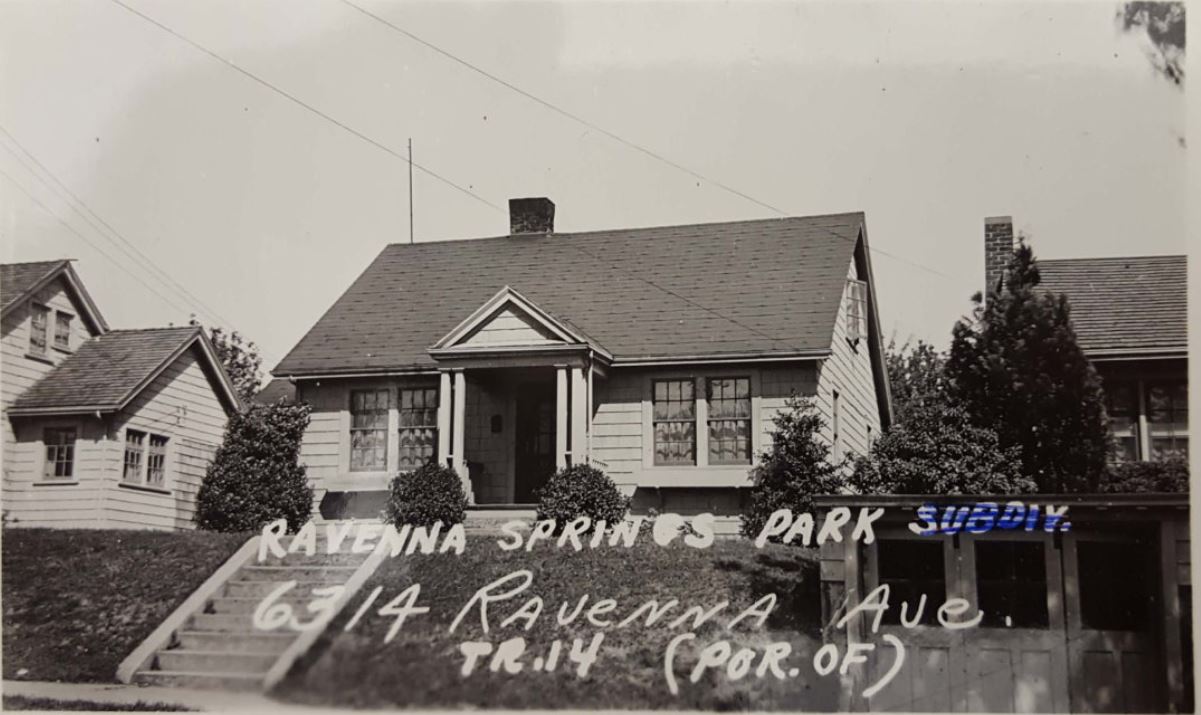 RAVENNA SPRINGS PARK SUBDIV.
6314 RAVENNA AVE.
TR.14 (POR. OF)